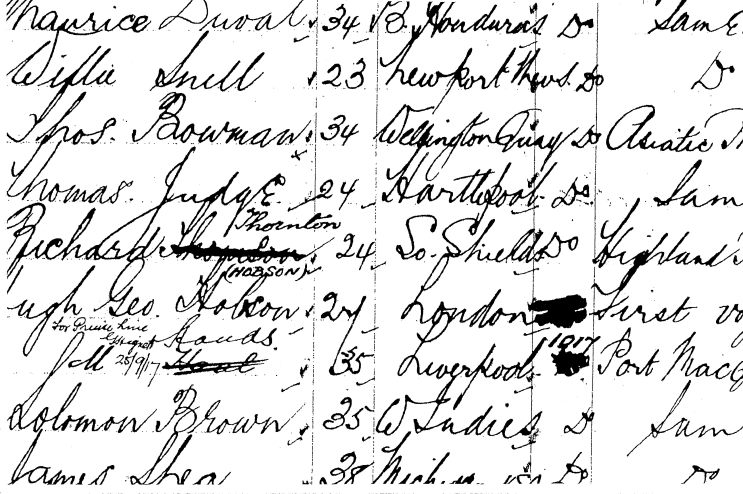 Maurice Duval 34 B. Honduras Do Sam
Willie Snell 23 Newport News. Do Do
Thos. Bowman. 34 Wellington Quay Do Asiatic
Thomas. Judge. 24 Hartlepool. Do. Sam
Thornton
Richard 24 So. Shields Do Highland
(HOBSON)
ugh Geo. Hobson 24 London First vo
Hands. 1917
J M 25/9/17 35 Liverpool. Port Macq
Solomon Brown 35 W Indies Do Sam
James Shea 38 Do Do